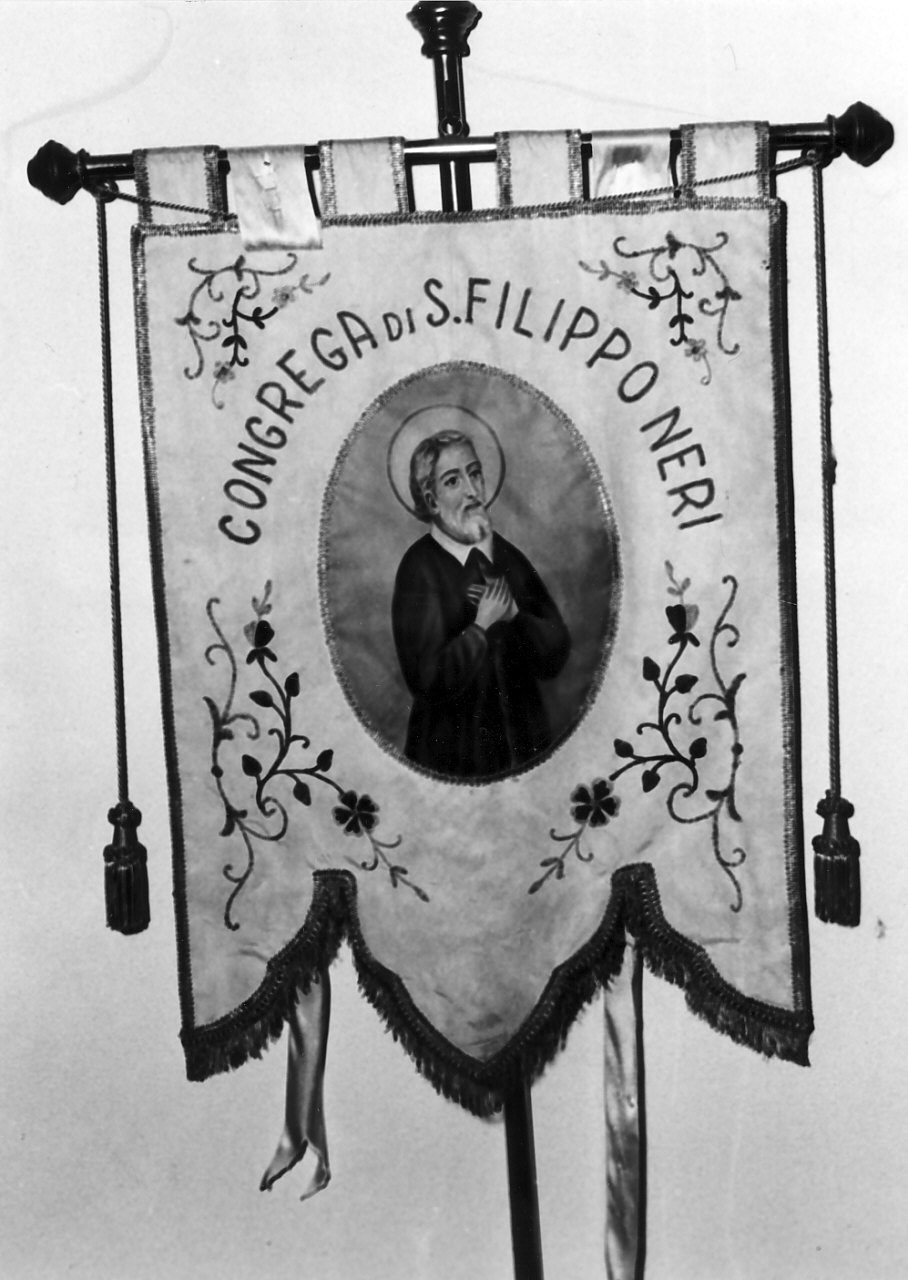 CONGREGA DI S. FILIPPO NERI